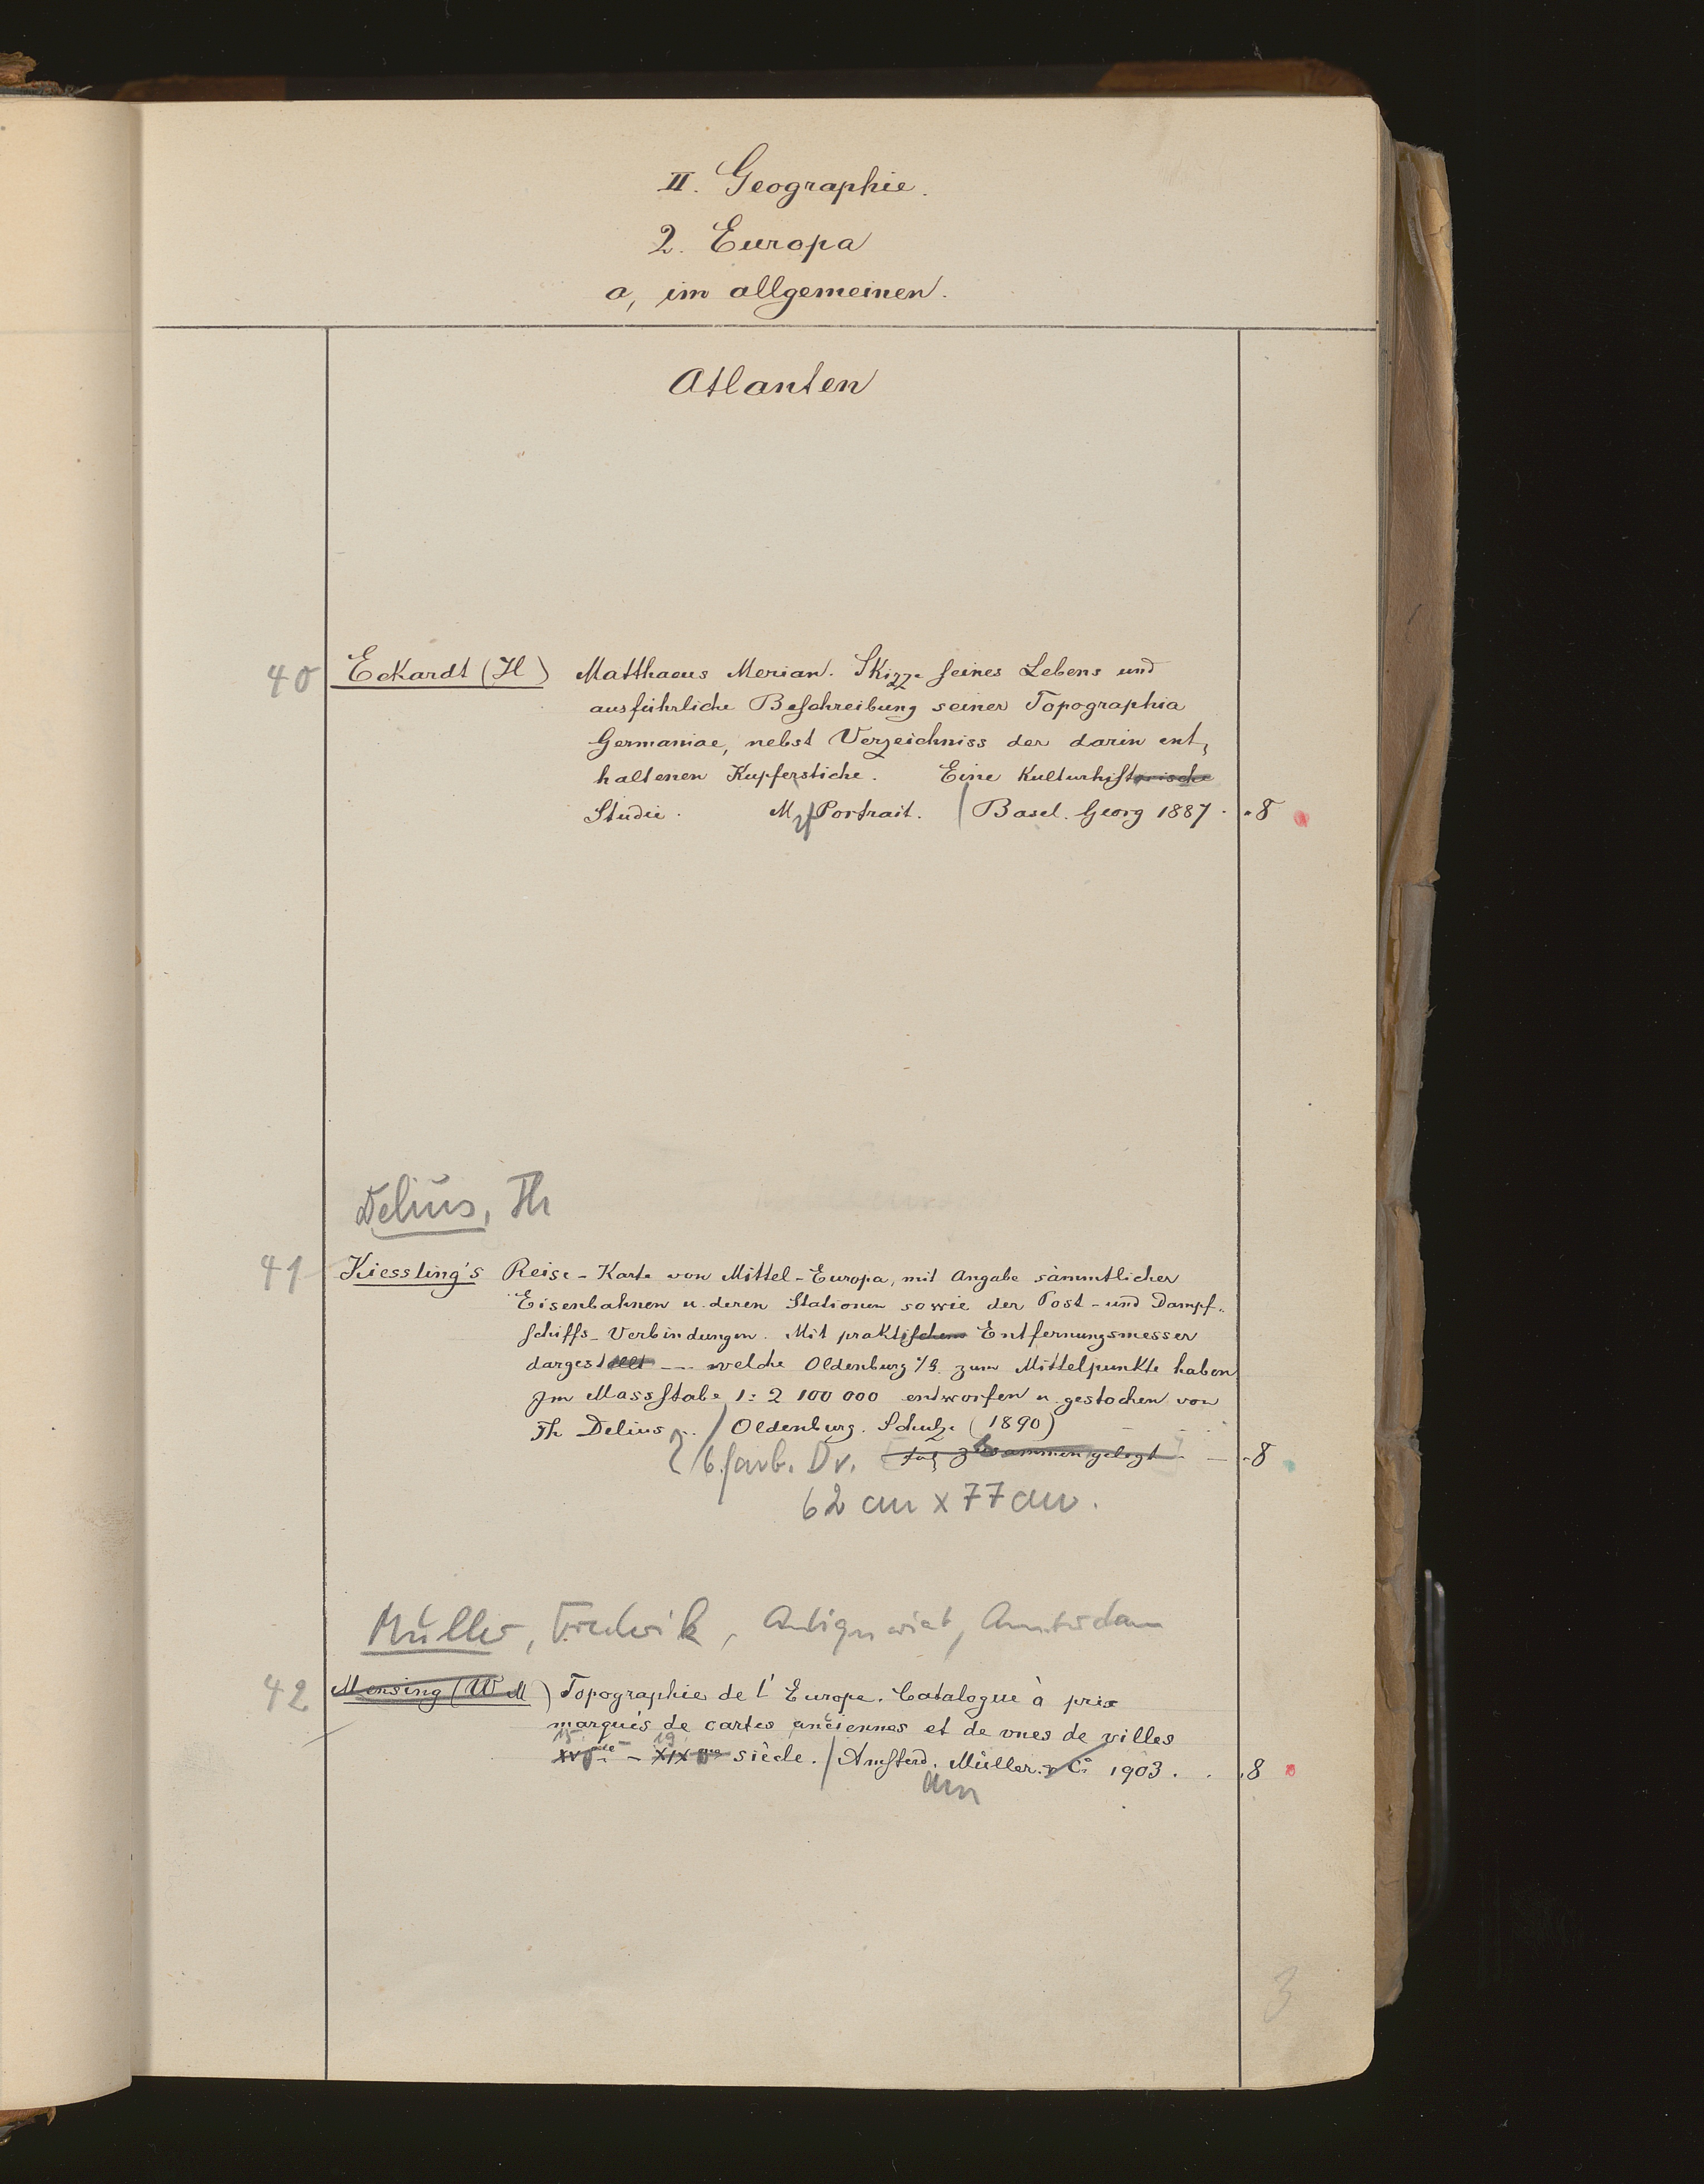 II. Geographie.
2. Europa
a, im allgemeinen.
Atlanten
40 Eckardt (H) Matthaeus Merian. Skizze seines Lebens und
ausführliche Beschreibung seiner Topographia
Germaniae, nebst Verzeichniss der darin ent,
haltenen Kupferstiche. Eine Kulturhistorische
Studie. M Portrait. / Basel. Georg 1887. . 8
Delius, Th
41 Kiessling's Reise-Karte von Mittel-Europa, mit Angabe sämmtlicher
Eisenbahnen u. deren Stationen sowie der Post- und Dampf-
schiffs-Verbindungen. Mit praktischem Entfernungsmesser
dargestellt --- welche Oldenburg i/G. zum Mittelpunkte haben
Im Massstabe 1: 2 100 000 entworfen u. gestochen von
Th Delius.. / Oldenburg. Schulze (1890)
6.farb. Dr. zusammengelegt - . 8
62 cm x 77 cm.
Müller, Frederik, Antiquariat, Amsterdam
42 Mensing (W M) Topographie de l'Europe. Catalogue à prix
marqués de cartes anciennes et de vues de villes
15. 19.
XVme - XIXme siècle. / Amsterd. Müller & Co 1903. . . 8
am
3